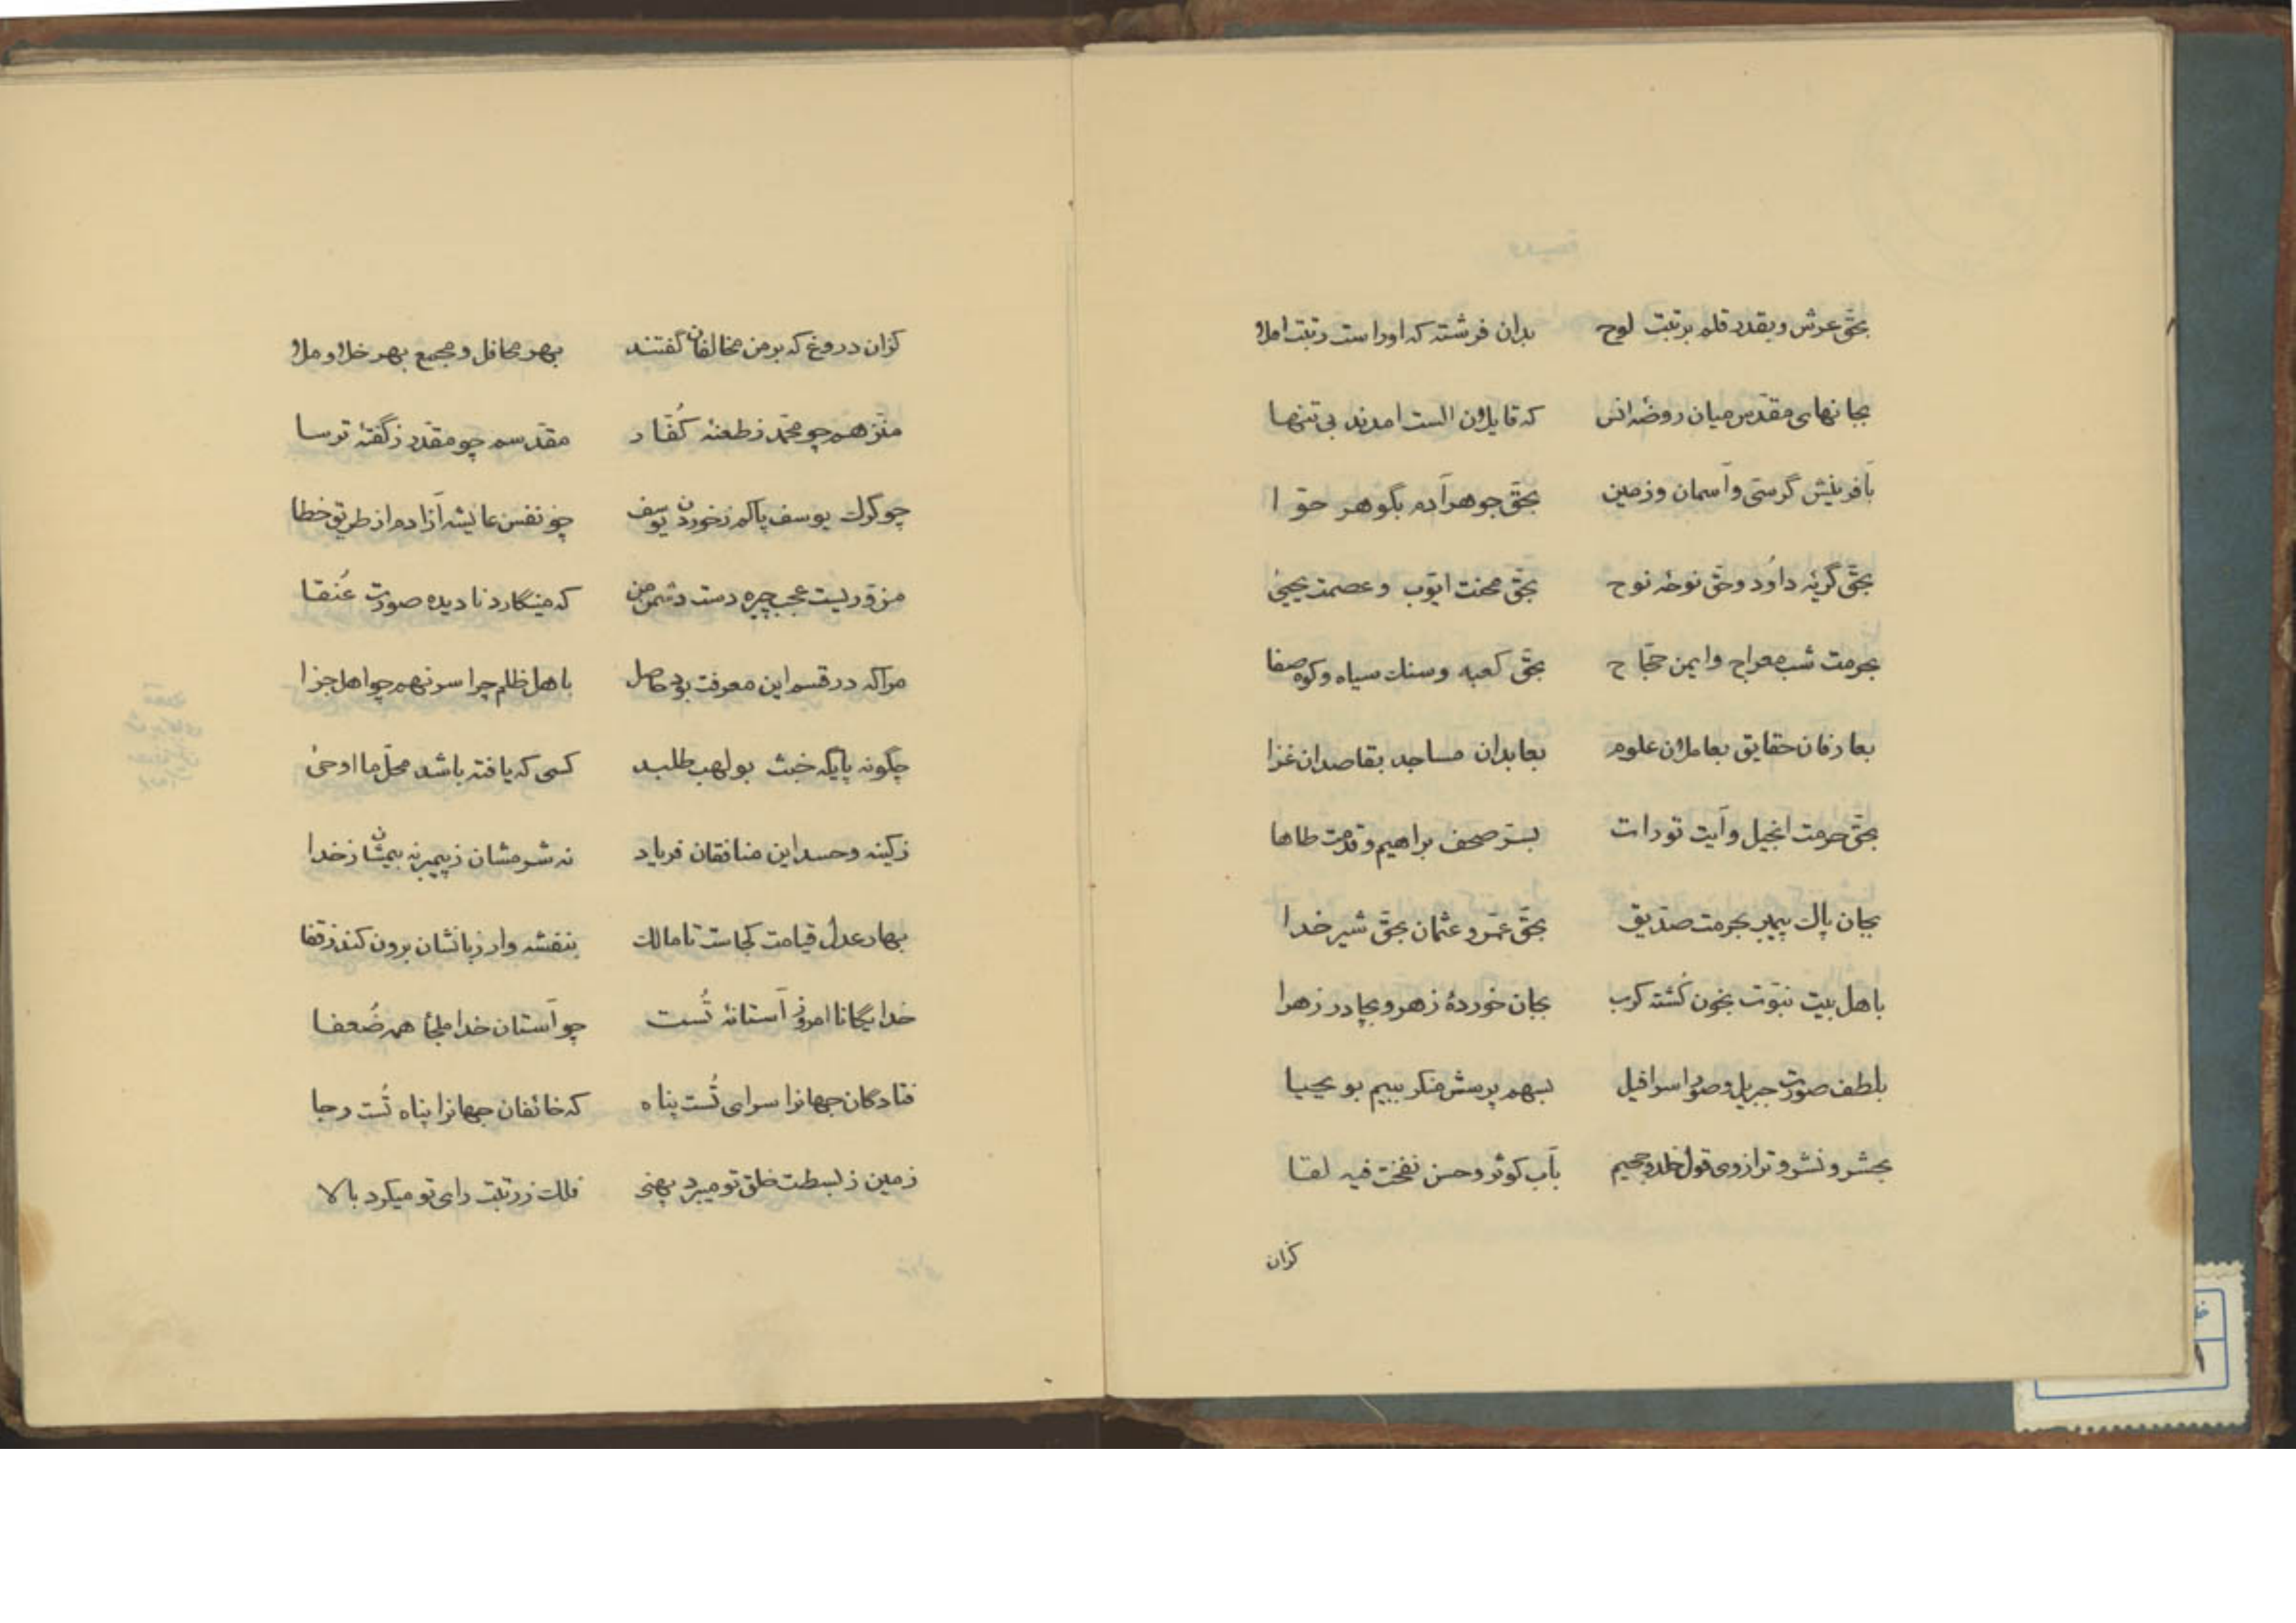 بحقّ عرش و بقدر قلم برتبت لوح بدان فرشته که اوراست رتبت املا
بجانهای مقدّس میان روضه انس که قایلان الست امدند بی تنها
بآفرینش کرسّی و آسمان و زمین بحقّ جوهر آدم بگوهر حوّا
بحقّ گریه داوُد و حقّ نوحه نوح بحقّ محنت ایّوب و عصمت یحییٰ
بحرمت شب معراج وایمن حجّاج بحقّ کعبه و سنك سیاه و کوه صفا
بعارفان حقایق بعاملان علوم بعابدان مساجد بقاصدان غزا
بحقّ حرمت انجیل و آیت تورات بسرّ صحف براهیم و قدمت طاها
بجان پاك پیمبر بحرمت صدّیق بحقّ عمّر و عثمان بحقّ شیر خدا
باهل بیت نبوّت بخون کُشته کرب بجان خوردهٔ زهر و بچادر زهرا
بلطف صورت جبریل و صور اسرافیل بسهم پرسش منکر ببیم بو یحیا
بحشر و نشر و ترازوی قول خلد و جحیم بآب کوثر و حسن نفخت فیه لقا
کزان
کزان دروغ که بر من مخالفان گفتند بهر محافل و مجمع بهر خلا و ملا
منزّهم چو محمّد زطعنه کُفّار مقدّسم چو مقدّر زگفته ترسا
چو کرك یوسف پاکم زخوردن یوسف چو نفس عایشه آزادم از طریق خطا
مزوّریست عجب چیره دست دشمن من که مینگارد نادیده صورت عُنقا
مراکه در قسم این معرفت بود حاصل باهل ظلم چرا سر نهم چو اهل جزا
چگونه پایگه خبث بولهب طلبد کسی که یافته باشد محلّ ما اوحیٰ
زکینه و حسد این منافقان فریاد نه شرمشان زپیمبر نه بیمشان زخدا
بهار عدل قیامت کجاست تا مالك بنفشه وار زبانشان برون کند زقفا
خدایگانا امروز آستانهٔ تُست چو آستان خدا ملجأ همه ضُعفا
فتادگان جهانرا سرای تُست پناه که خائفان جهانرا پناه تُست و جا
زمین زبسطت خلق تو میبرد پهنی فلك زرتبت رای تو میکرد بالا